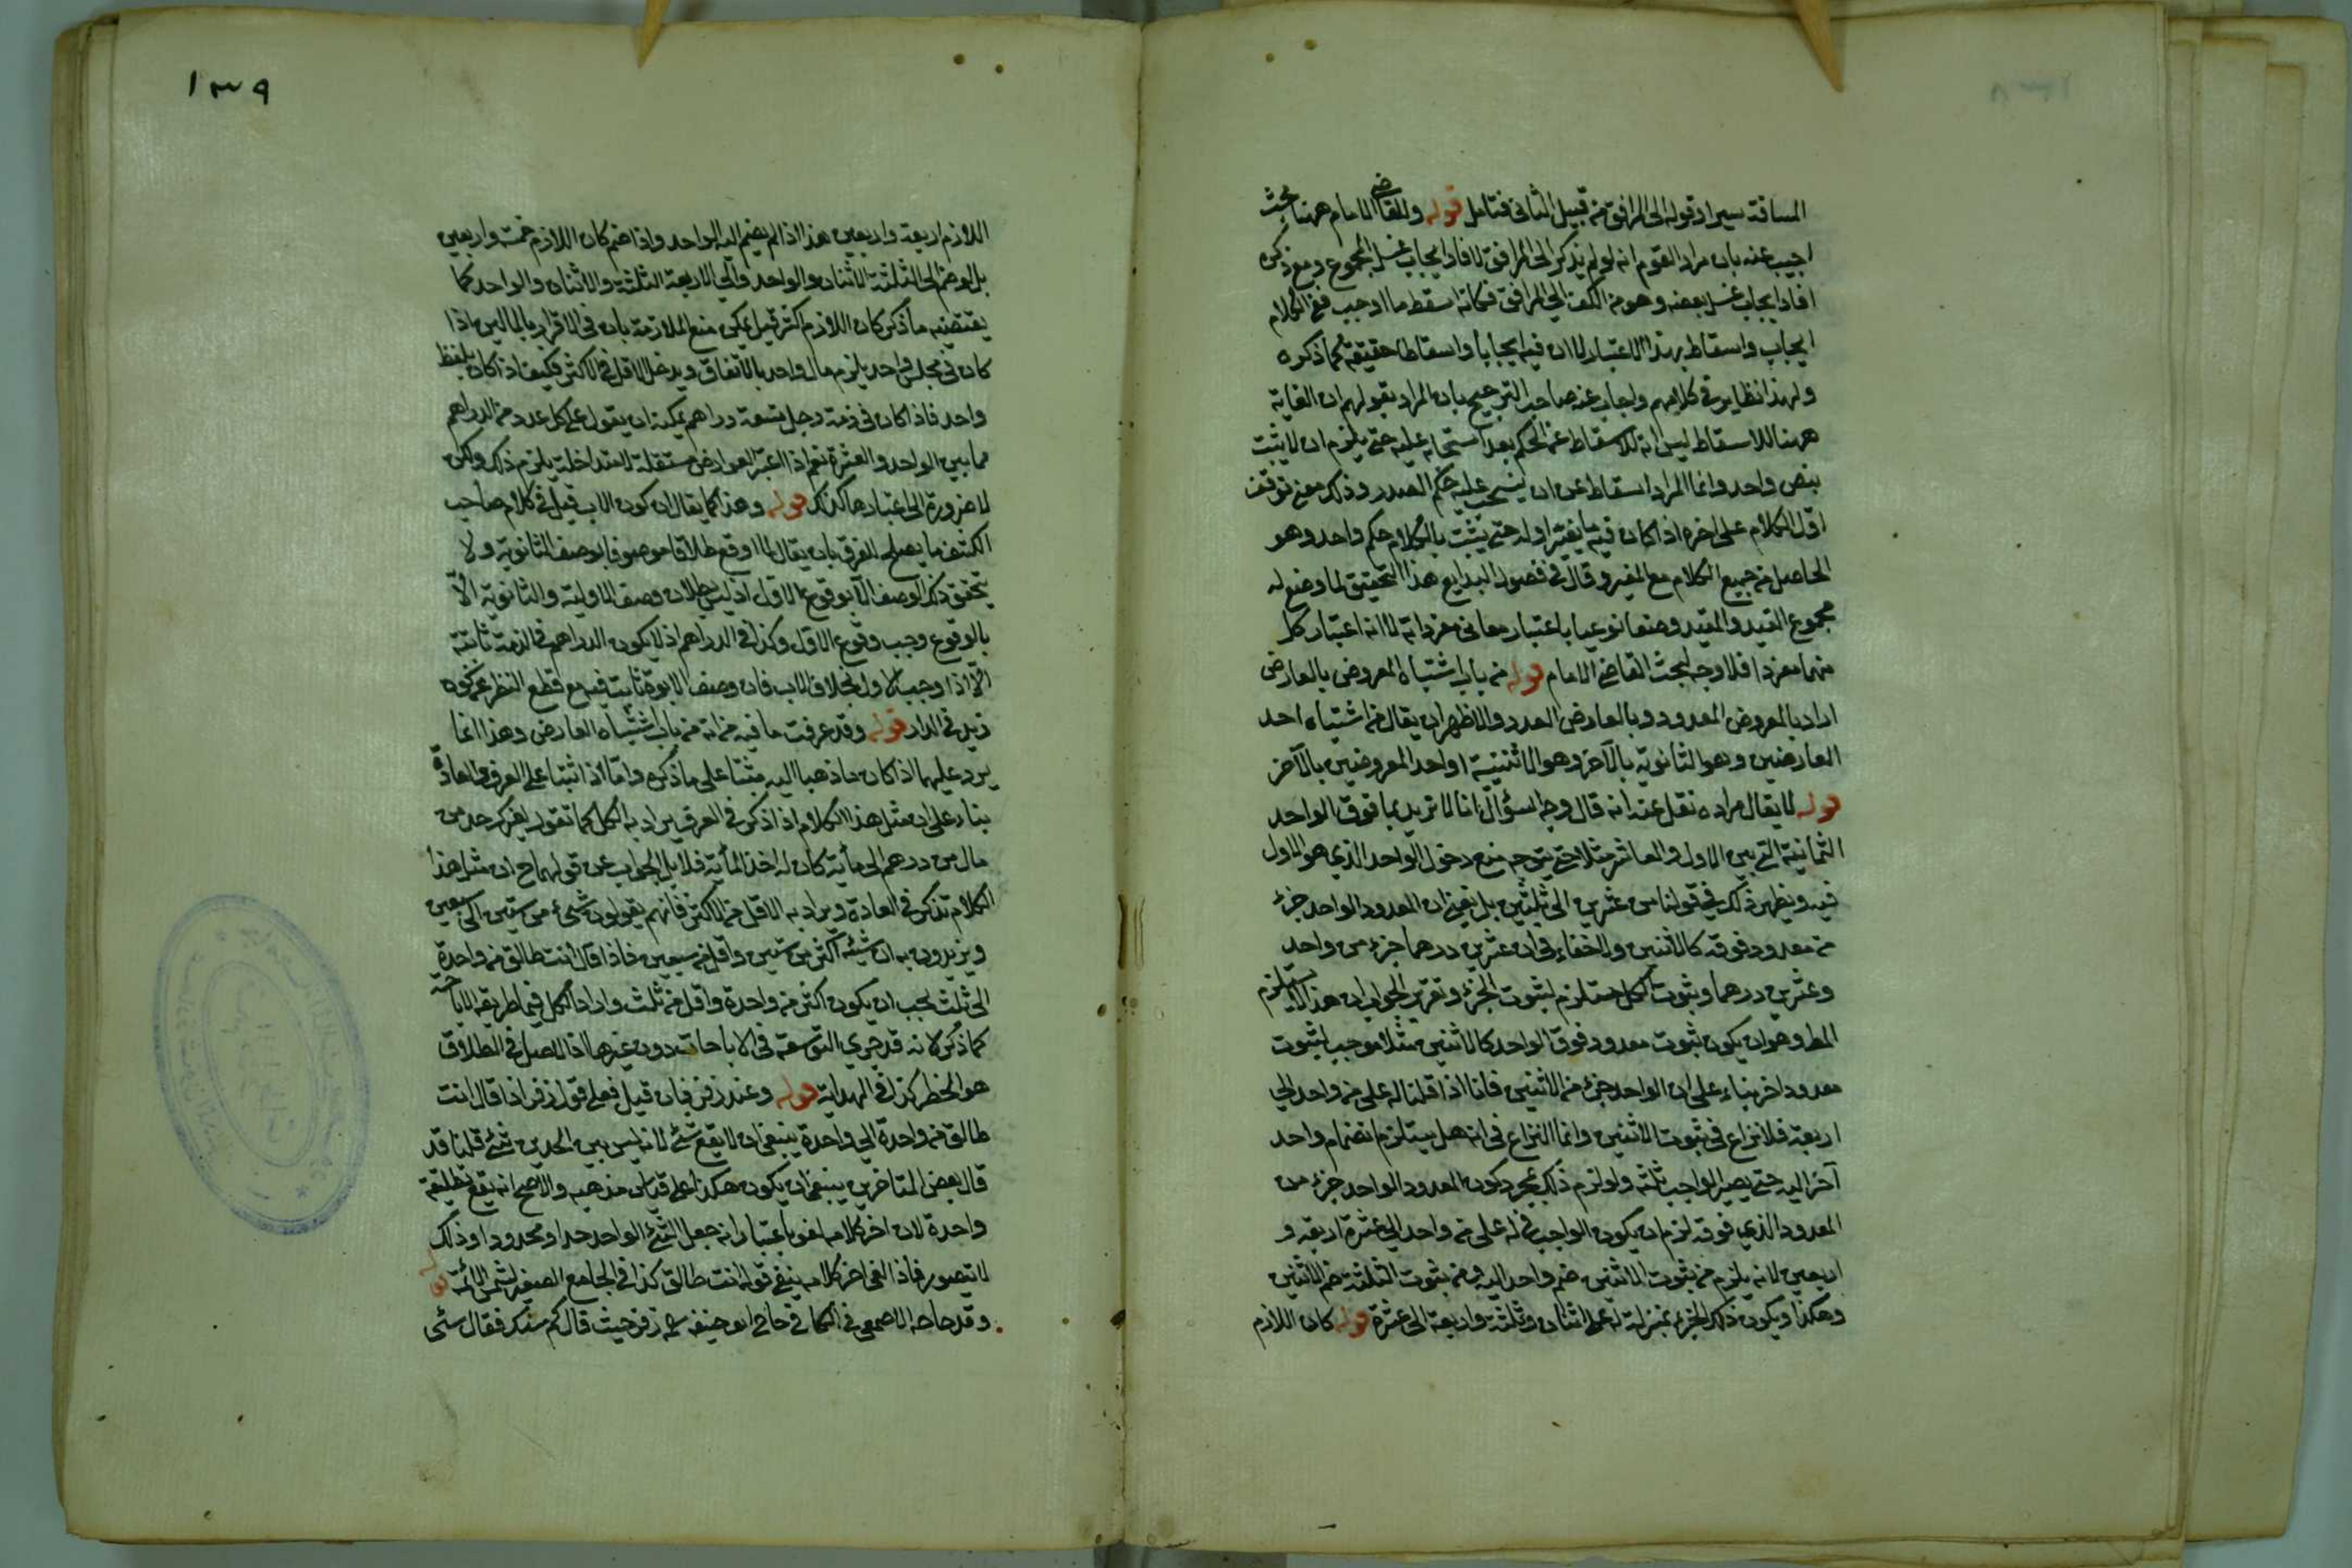 المسافة سيرا وقوله الى المرافق من قبيل الثانى فتامل قوله وللقاضى الامام ههنا بحث
اجيب عنه بان مراد القوم انه لو لم يذكر الى المرافق لافاد ايجاب غسل المجموع ومع ذكره
افاد ايجاب غسل بعضه وهو من الكف الى المرافق فكانه اسقط ما اوجب ففى الكلام
ايجاب واسقاط بهذا الاعتبار لا ان فيه ايجابا واسقاطا حقيقة كما ذكره
ولهذا نظاير فى كلامهم واجاب عنه صاحب الترجيح بان المراد بقولهم ان الغاية
ههنا للاسقاط ليس انه للاسقاط عن الحكم بعد عليه حتى يلزم ان لا يثبت
بنص واحد وانما المراد اسقاط عن ان ينسحب عليه حكم الصدر وذلك معنى توقف
اول الكلام على اخره اذا كان فيه ما يغير اوله حتى يثبت بالكلام حكم واحد وهو
الحاصل من جميع الكلام مع المغير وقال فى فصول البدايع هذا التحقيق لما وضع له
مجموع القيد والمقيد وضعا نوعيا باعتبار معانى مفرداته لا انه اعتبار كل
منهما مفردا فلا وجه لبحث القاضى الامام قوله من باب اشتباه المعروض بالعارض
اراد بالمعروض المعدود وبالعارض العدد والاظهر ان يقال من اشتباه احد
العارضين وهو الثانوية بالآخر وهو الاثنينية او احد المعروضين بالآخر
قوله لا يقال مراده نقل عنه انه قال وجه السؤال انا لا نريد بما فوق الواحد
الثمانية التى بين الاول والعاشر مثلا حتى يتوجه منع دخول الواحد الذى هو الاول
فيه ونظير ذلك فى قولنا من عشرين الى ثلثين بل نعنى ان المعدود الواحد جزء
من معدود فوقه كالاثنين ولا خفاء فى ان عشرين درهما جزء من واحد
وعشرين درهما وثبوت الكل مستلزم لثبوت الجزء وتقرير الجواب ان هذا لا يستلزم
المط وهو ان يكون ثبوت معدود فوق الواحد كالاثنين مثلا موجب لثبوت
معدود اخر بناء على ان الواحد جزء من الاثنين فانا اذا قلنا له على من واحد الى
اربعة فلا نزاع فى ثبوت الاثنين وانما النزاع فى انه هل يستلزم انضمام واحد
آخر اليه حتى يصير الواجب ثلثة ولو لزم ذلك بمجرد كون المعدود الواحد جزء من
المعدود الذى فوقه لزم ان يكون الواجب فى له على من واحد الى عشرة اربعة و
اربعين لانه يلزم من ثبوت الاثنين ضم واحد اليه ومن ثبوت الثلثة ضم الاثنين
وهكذا ويكون ذلك الجزء بمنزلة له على اثنان وثلثة واربعة الى عشرة قوله كان اللازم
١٣٩
اللازم اربعة واربعين هذا اذا لم يضم اليه الواحد واذا ضم كان اللازم خمسة واربعين
بل لو ضم الى الثلثة الاثنان والواحد والى الاربعة الثلثة والاثنان والواحد كما
يقتضيه ما ذكر كان اللازم اكثر قيل يمكن منع الملازمة بان فى الاقرار بالمالين اذا
كان فى مجلس واحد يلزم مال واحد بالاتفاق ويدخل الاقل فى الاكثر فكيف اذا كان بلفظ
واحد فاذا كان فى ذمة رجل تسعة دراهم يمكنه ان يقول على كل عدد من الدراهم
مما بين الواحد والعشرة نعم اذا اعتبر العوارض مستقلة لا متداخلة يلزم ذلك ولكن
لا ضرورة الى اعتبارها كذلك قوله وهذا كما يقال ان كون الاب قيل فى كلام صاحب
الكشف ما يصلح للفرق بان يقال لما اوقع طلاقا موصوفا بوصف الثانوية ولا
يتحقق ذلك الوصف الا بوقوع الاول اذ ليس وصف الاولية والثانوية الا
بالوقوع وجب وقوع الاول وكذا فى الدراهم اذ لا يكون الدراهم فى الذمة ثانية
الا اذا وجب الاول بخلاف الاب فان وصف الابوة ثابت فيه مع قطع النظر عن كونه
زيد فى الدار قوله وقد عرفت ما فيه من انه من باب اشتباه العارض وهذا انما
يرد عليهما اذا كان ما ذهبا اليه مبتنيا على ما ذكره واما اذا اثبتا على العرف والعادة
بناء على ان مثل هذا الكلام اذا ذكر فى العرف يراد به الكل كما تقول لغيرك خذ من
مال من درهم الى مأية كان له اخذ المأية فلا بل الجواب عن قولهما ح ان مثل هذا
الكلام تذكر فى العادة ويراد به الاقل من الاكثر فانهم يقولون شئ من ستين الى سبعين
ويريدون به ان سنه اكثر من ستين واقل من سبعين فاذا قال انت طالق من واحدة
الى ثلث يجب ان يكون اكثر من واحدة واقل من ثلث واراد الكل فيما طريقه الاباحة
كما ذكر لانه قد جرى التوسعة فى الاباحات دون غيرها اذ الاصل فى الطلاق
هو الحظر كذا فى الهداية قوله وعند زفر فان قيل فعلى قول زفر اذا قال انت
طالق من واحدة الى واحدة ينبغى ان لا يقع شئ لانه ليس بين الحدين شئ قلنا قد
قال بعض المتاخرين ينبغى ان يكون هكذا على قياس مذهبه والاصح انه يقع تطليقة
واحدة لان اخر كلامه لغو باعتبار انه جعل الشئ الواحد حدا ومحدودا وذلك
لا يتصور فاذا لغى اخر كلامه يبقى قوله انت طالق كذا فى الجامع الصغير لشمس الائمة قوله
وقد حاجه الاصمعى فى الكافى حاج ابو حنيفة رحمه زفر حيث قال كم سنك فقال ستى